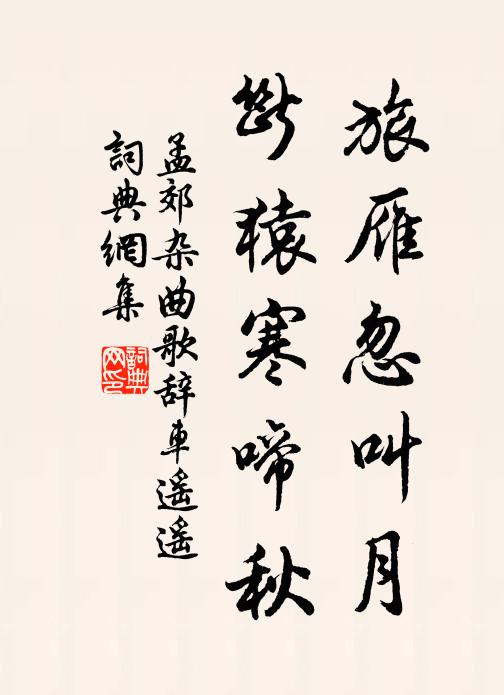 旅雁忽叫月
断猿寒啼秋
孟郊杂曲歌辞车遥遥
詞典網集
詞典网印